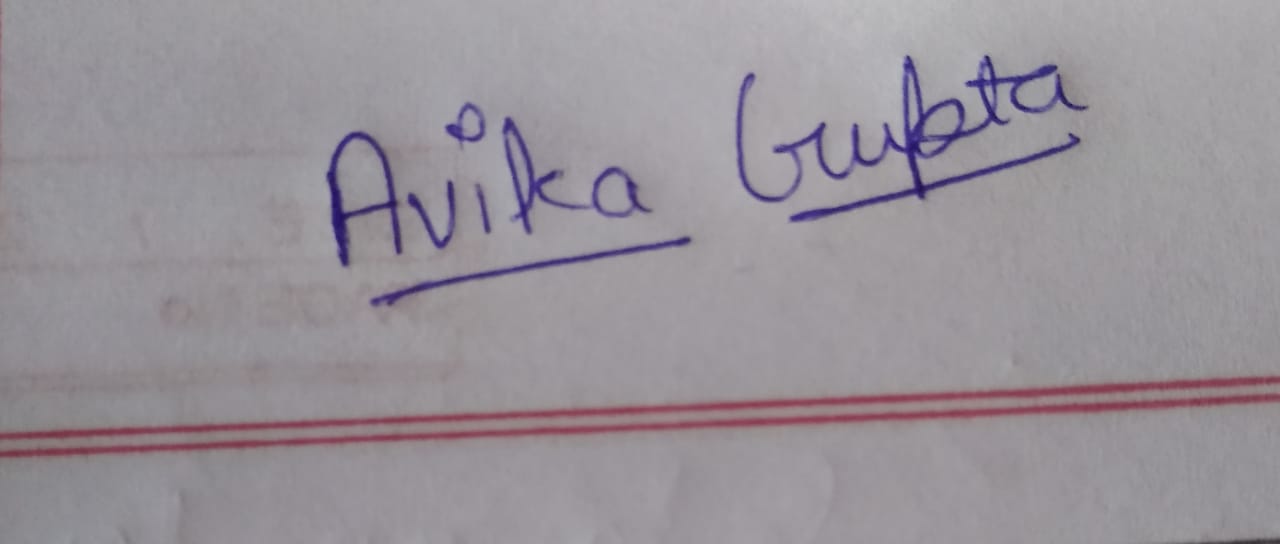 Avika Gupta